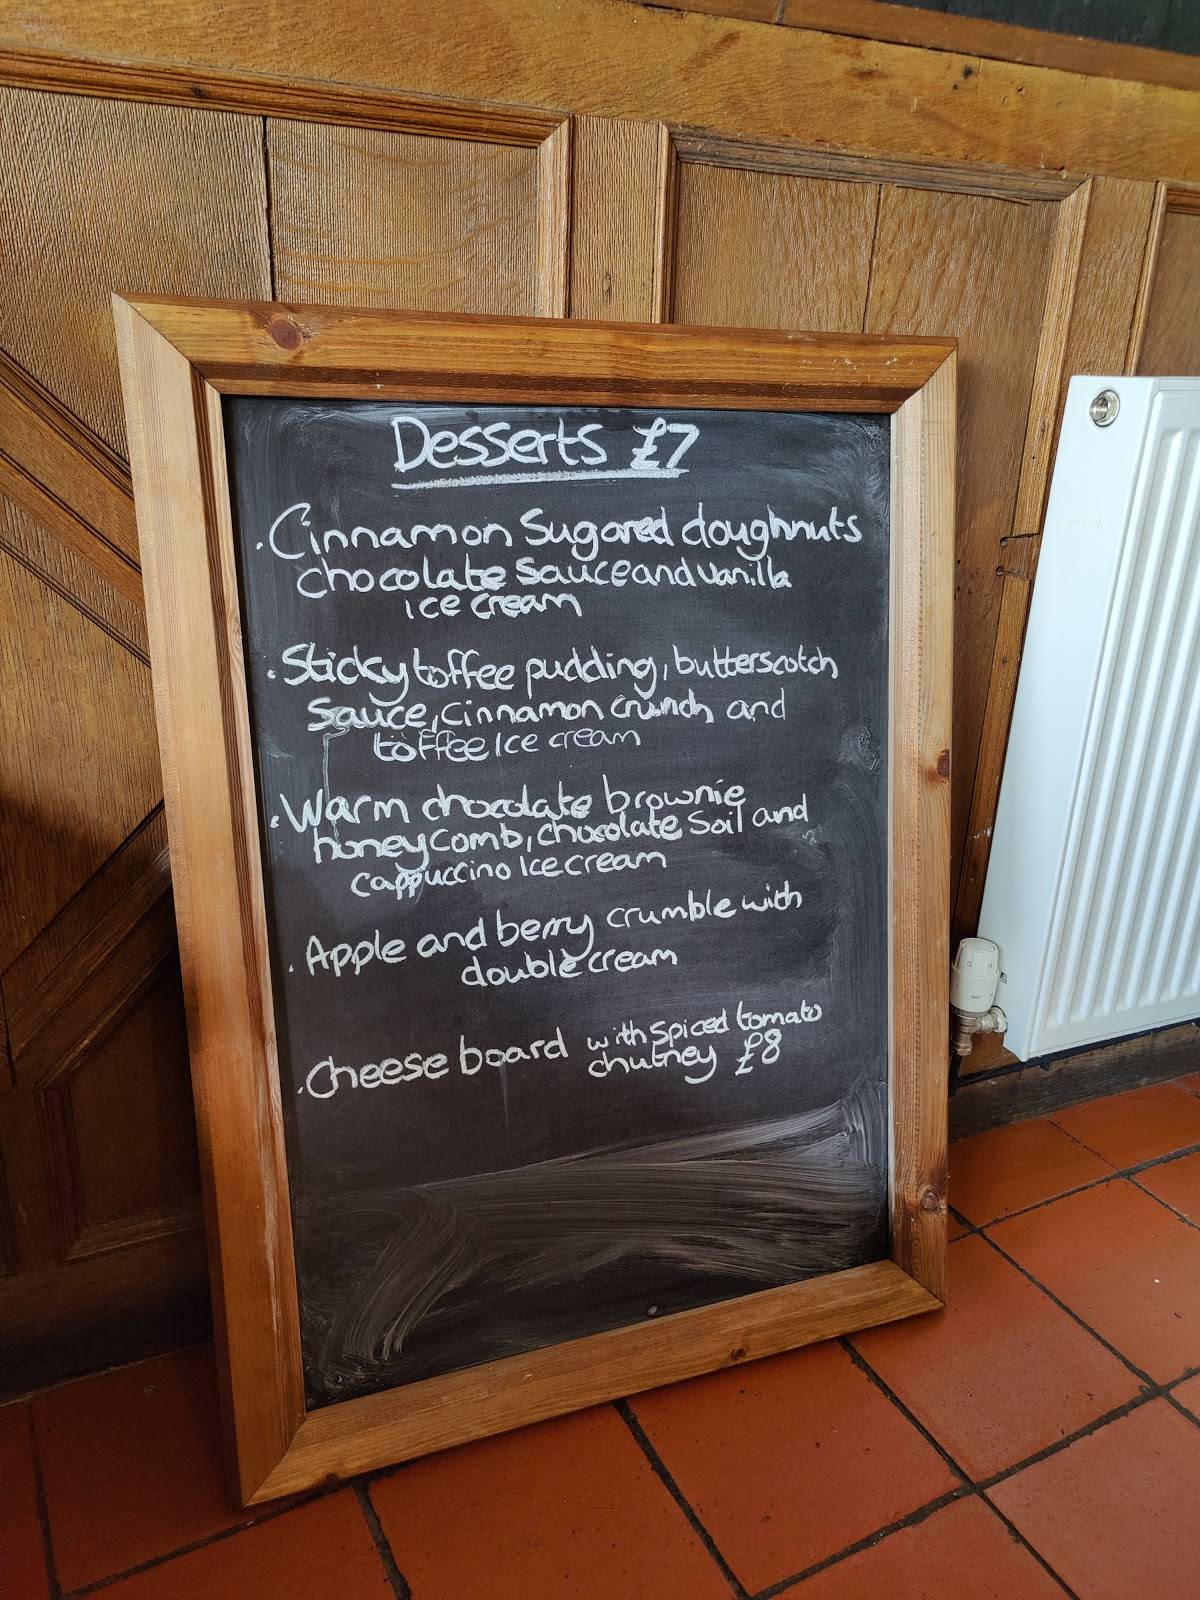 Desserts £7
. Cinnamon Sugared doughnuts
chocolate sauce and vanilla
ice cream
. Sticky toffee pudding, butterscotch
sauce, cinnamon crunch and
toffee Ice cream
. Warm chocolate brownie
honeycomb, chocolate Soil and
cappuccino Ice cream
. Apple and berry crumble with
double cream
. Cheese board with spiced tomato
chutney £8